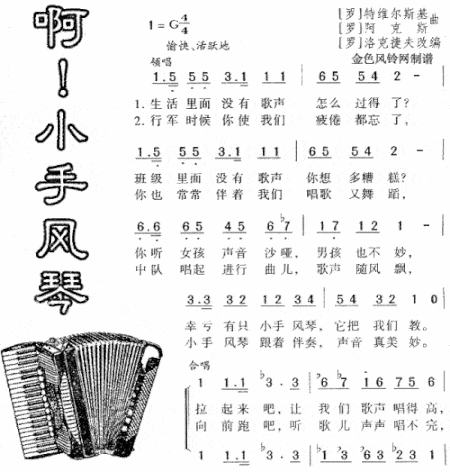 啊！小手风琴
1=G 4/4
[罗]特维尔斯基
[罗]阿克斯曲
[罗]洛克捷夫改编
愉快、活跃地
金色风铃网制谱
领唱
1.5 55 3.1 11 | 65 54 2 - |
1.生活里面没有歌声 怎么过得了?
2.行军时候你使我们 疲倦都忘了,
1.5 55 3.1 11 | 65 54 2 - |
班级里面没有歌声 你想多糟糕?
你也常常伴着我们 唱歌又舞蹈,
6.6 65 45 6♭7 | 17 12 1 - |
你听女孩声音沙哑, 男孩也不妙,
中队唱起进行曲儿, 歌声随风飘,
3.3 32 12 34 | 54 32 10
幸亏有只小手风琴, 它把我们教。
小手风琴跟着伴奏, 声音真美妙。
合唱
1 1.1 ♭3.3 | ♭6♭7 16 75 6
拉起来吧,让我们歌声唱得高,
向前跑吧,听歌儿声声唱不完,
1 1.1 ♭3.3 | ♭1♭3 ♭63 ♭23 1